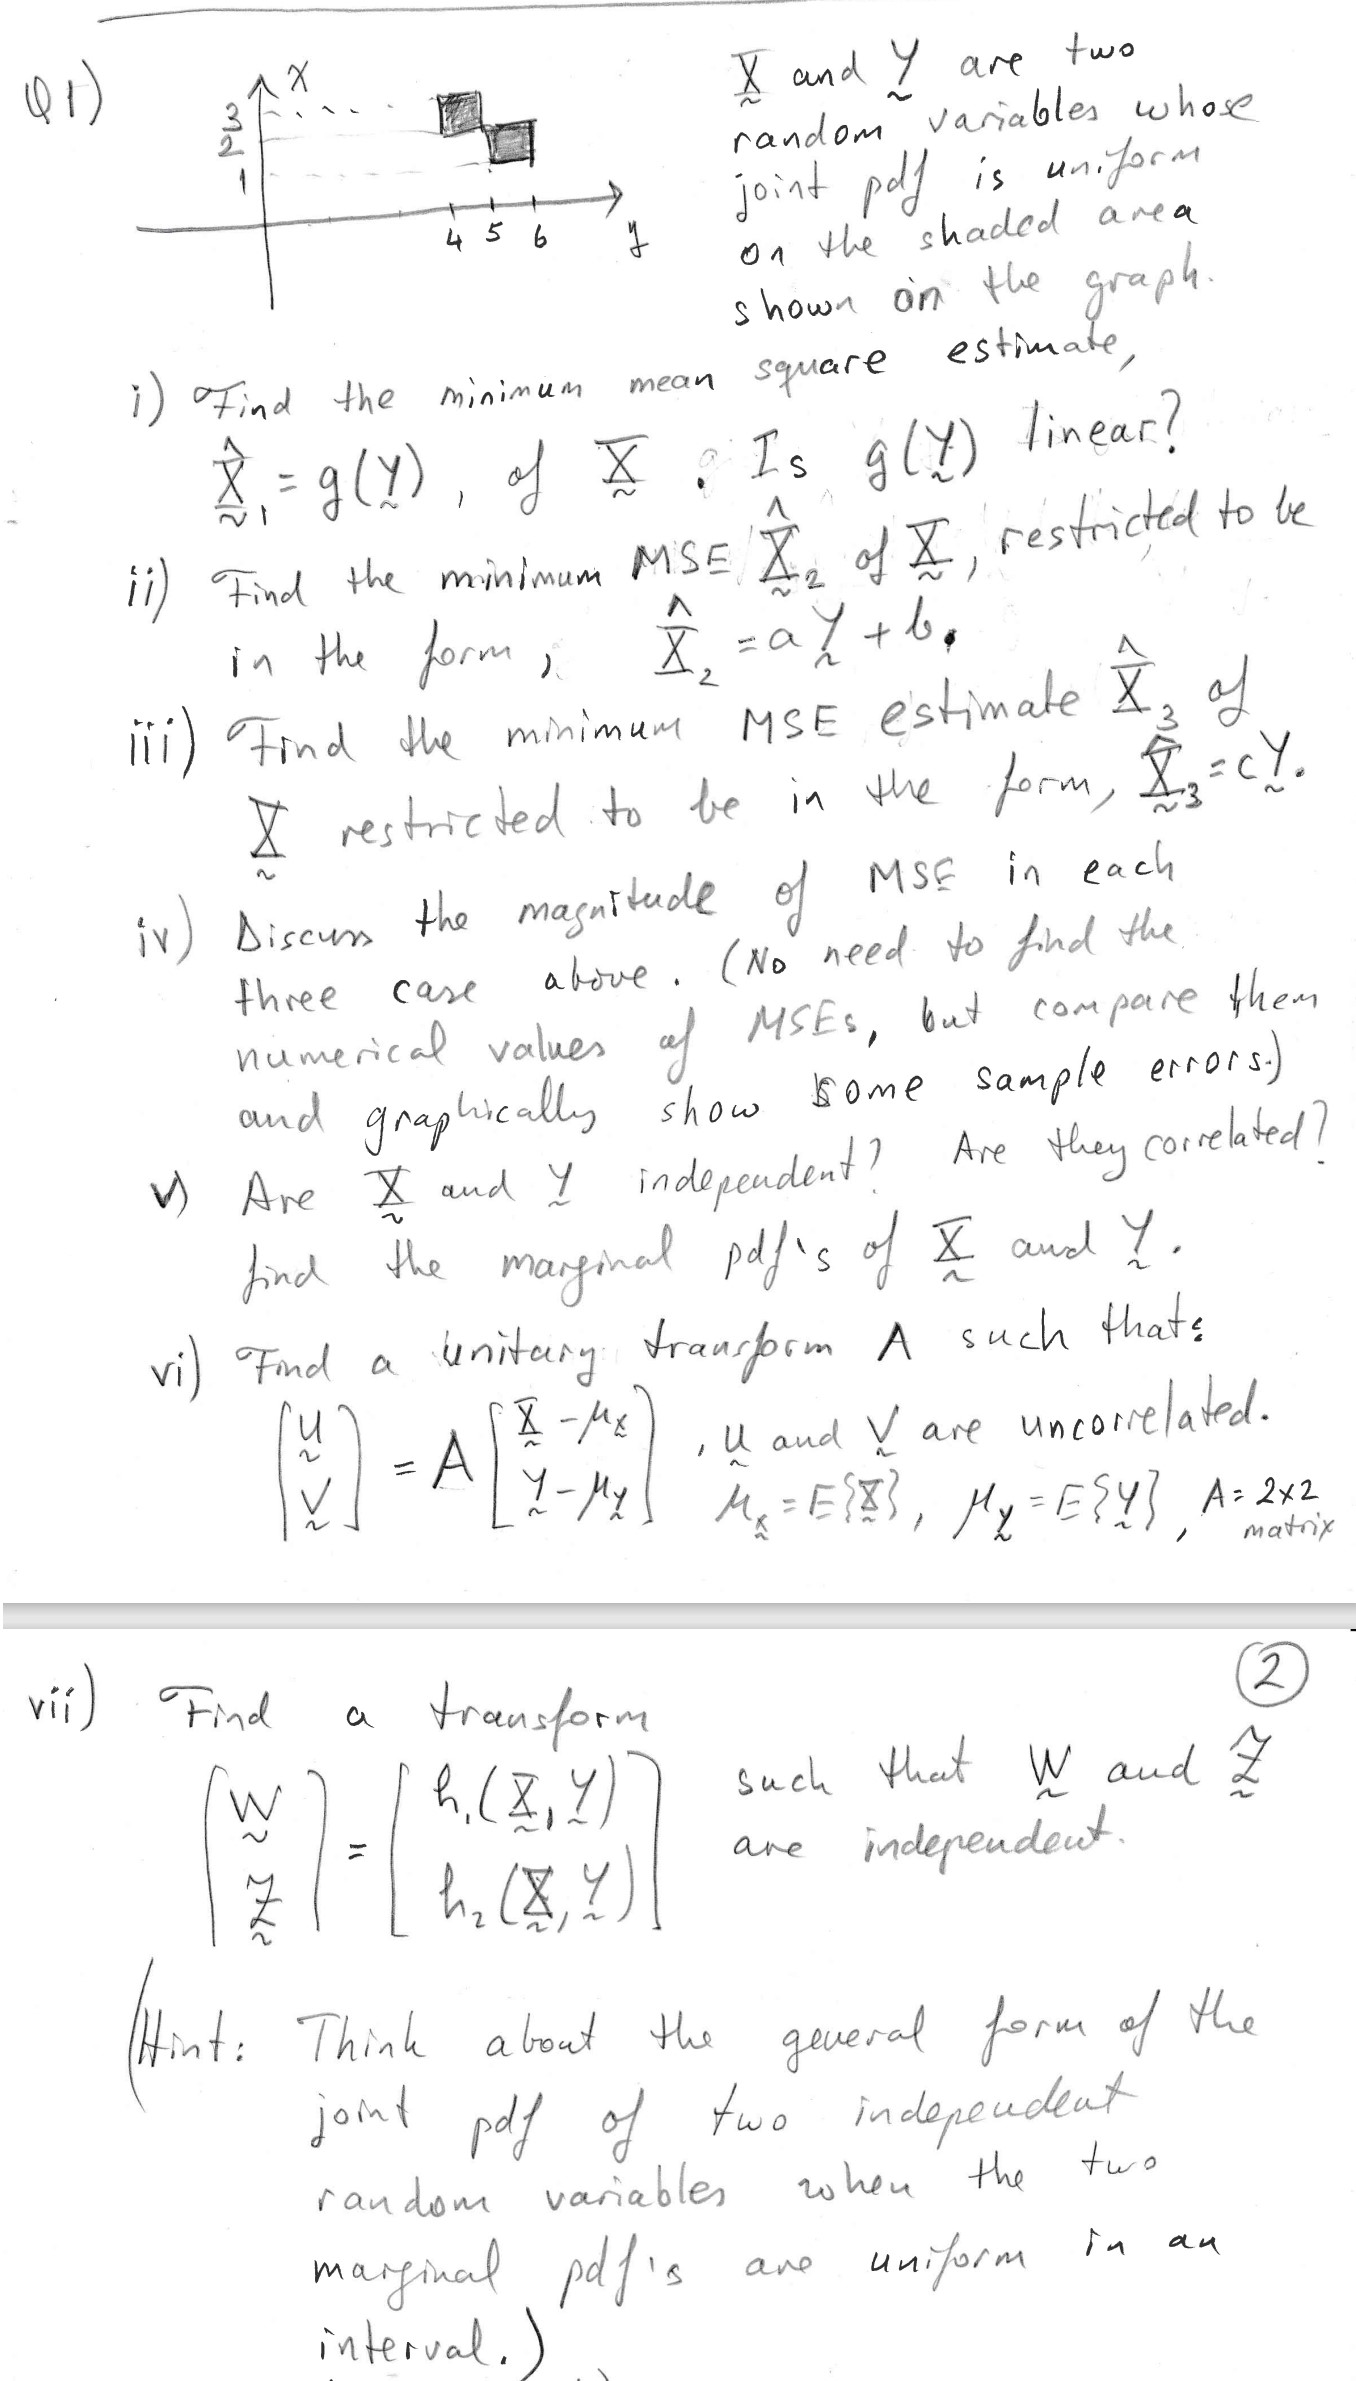 Q1)
x
3
2
1
4 5 6
y
X and Y are two
random variables whose
joint pdf is uniform
on the shaded area
shown on the graph.
i) Find the minimum mean square estimate,
X̂₁ = g(Y), of X. Is g(Y) linear?
ii) Find the minimum MSE X̂₂ of X, restricted to be
in the form, X̂₂ = aY + b.
iii) Find the minimum MSE estimate X̂₃ of
X restricted to be in the form, X̂₃ = cY.
iv) Discuss the magnitude of MSE in each
three case above. (No need to find the
numerical values of MSEs, but compare them
and graphically show some sample errors.)
v) Are X and Y independent? Are they correlated?
find the marginal pdf's of X and Y.
vi) Find a unitary transform A such that:
[U V] = A [X - μx Y - μy], U and V are uncorrelated.
μx = E{X}, μy = E{Y}, A = 2x2
matrix
2
vii) Find a transform
[W Z] = [h₁(X,Y) h₂(X,Y)] such that W and Z
are independent.
(Hint: Think about the general form of the
joint pdf of two independent
random variables when the two
marginal pdf's are uniform in an
interval.)